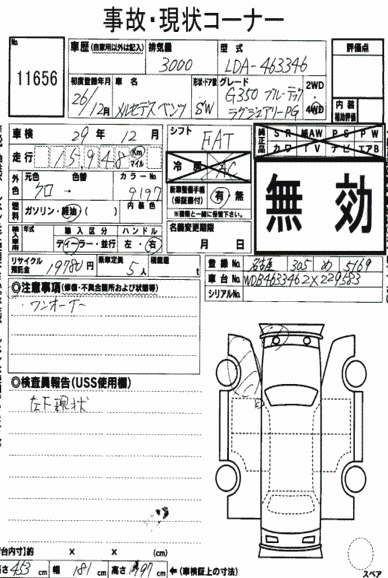 事故・現状コーナー
No. 11656
車歴 (自家用以外は記入) 排気量 3000 型式 LDA-463346
評価点
初度登録年月 26/12月 車名 メルセデスベンツ 形状・ドア数 SW グレード G350 ブルーテック ラグジュアリーPG 2WD・4WD
内装 補助評価
車検 29年 12月 シフト FAT
純正品 SR 純AW PS PW カワ TV ナビ エアB
走行 15948 Km マイル
冷房 AC
無効
外色 元色 クロ→ 色替 カラーNo. 9197
新車整備手帳 (保証書付) 有 無
※書類と一緒に保管下さい。
燃料 ガソリン・軽油 ( ) 内装色
名義変更期限 月 日
輸入車 輸入区分 ディーラー・並行 ハンドル 左・右
リサイクル預託金 19780円 乗車定員 5人 積載量 t
登録No. 名古屋 305 め 5169
車台No. WDB4633462X229583
シリアルNo.
◎注意事項(修復・不具合箇所および状態等)
・ワンオーナー
◎検査員報告(USS使用欄)
左下現状
台内寸)約 × × (cm)
長さ 453 幅 181 高さ 197 ←(車検証上の寸法)
スペア